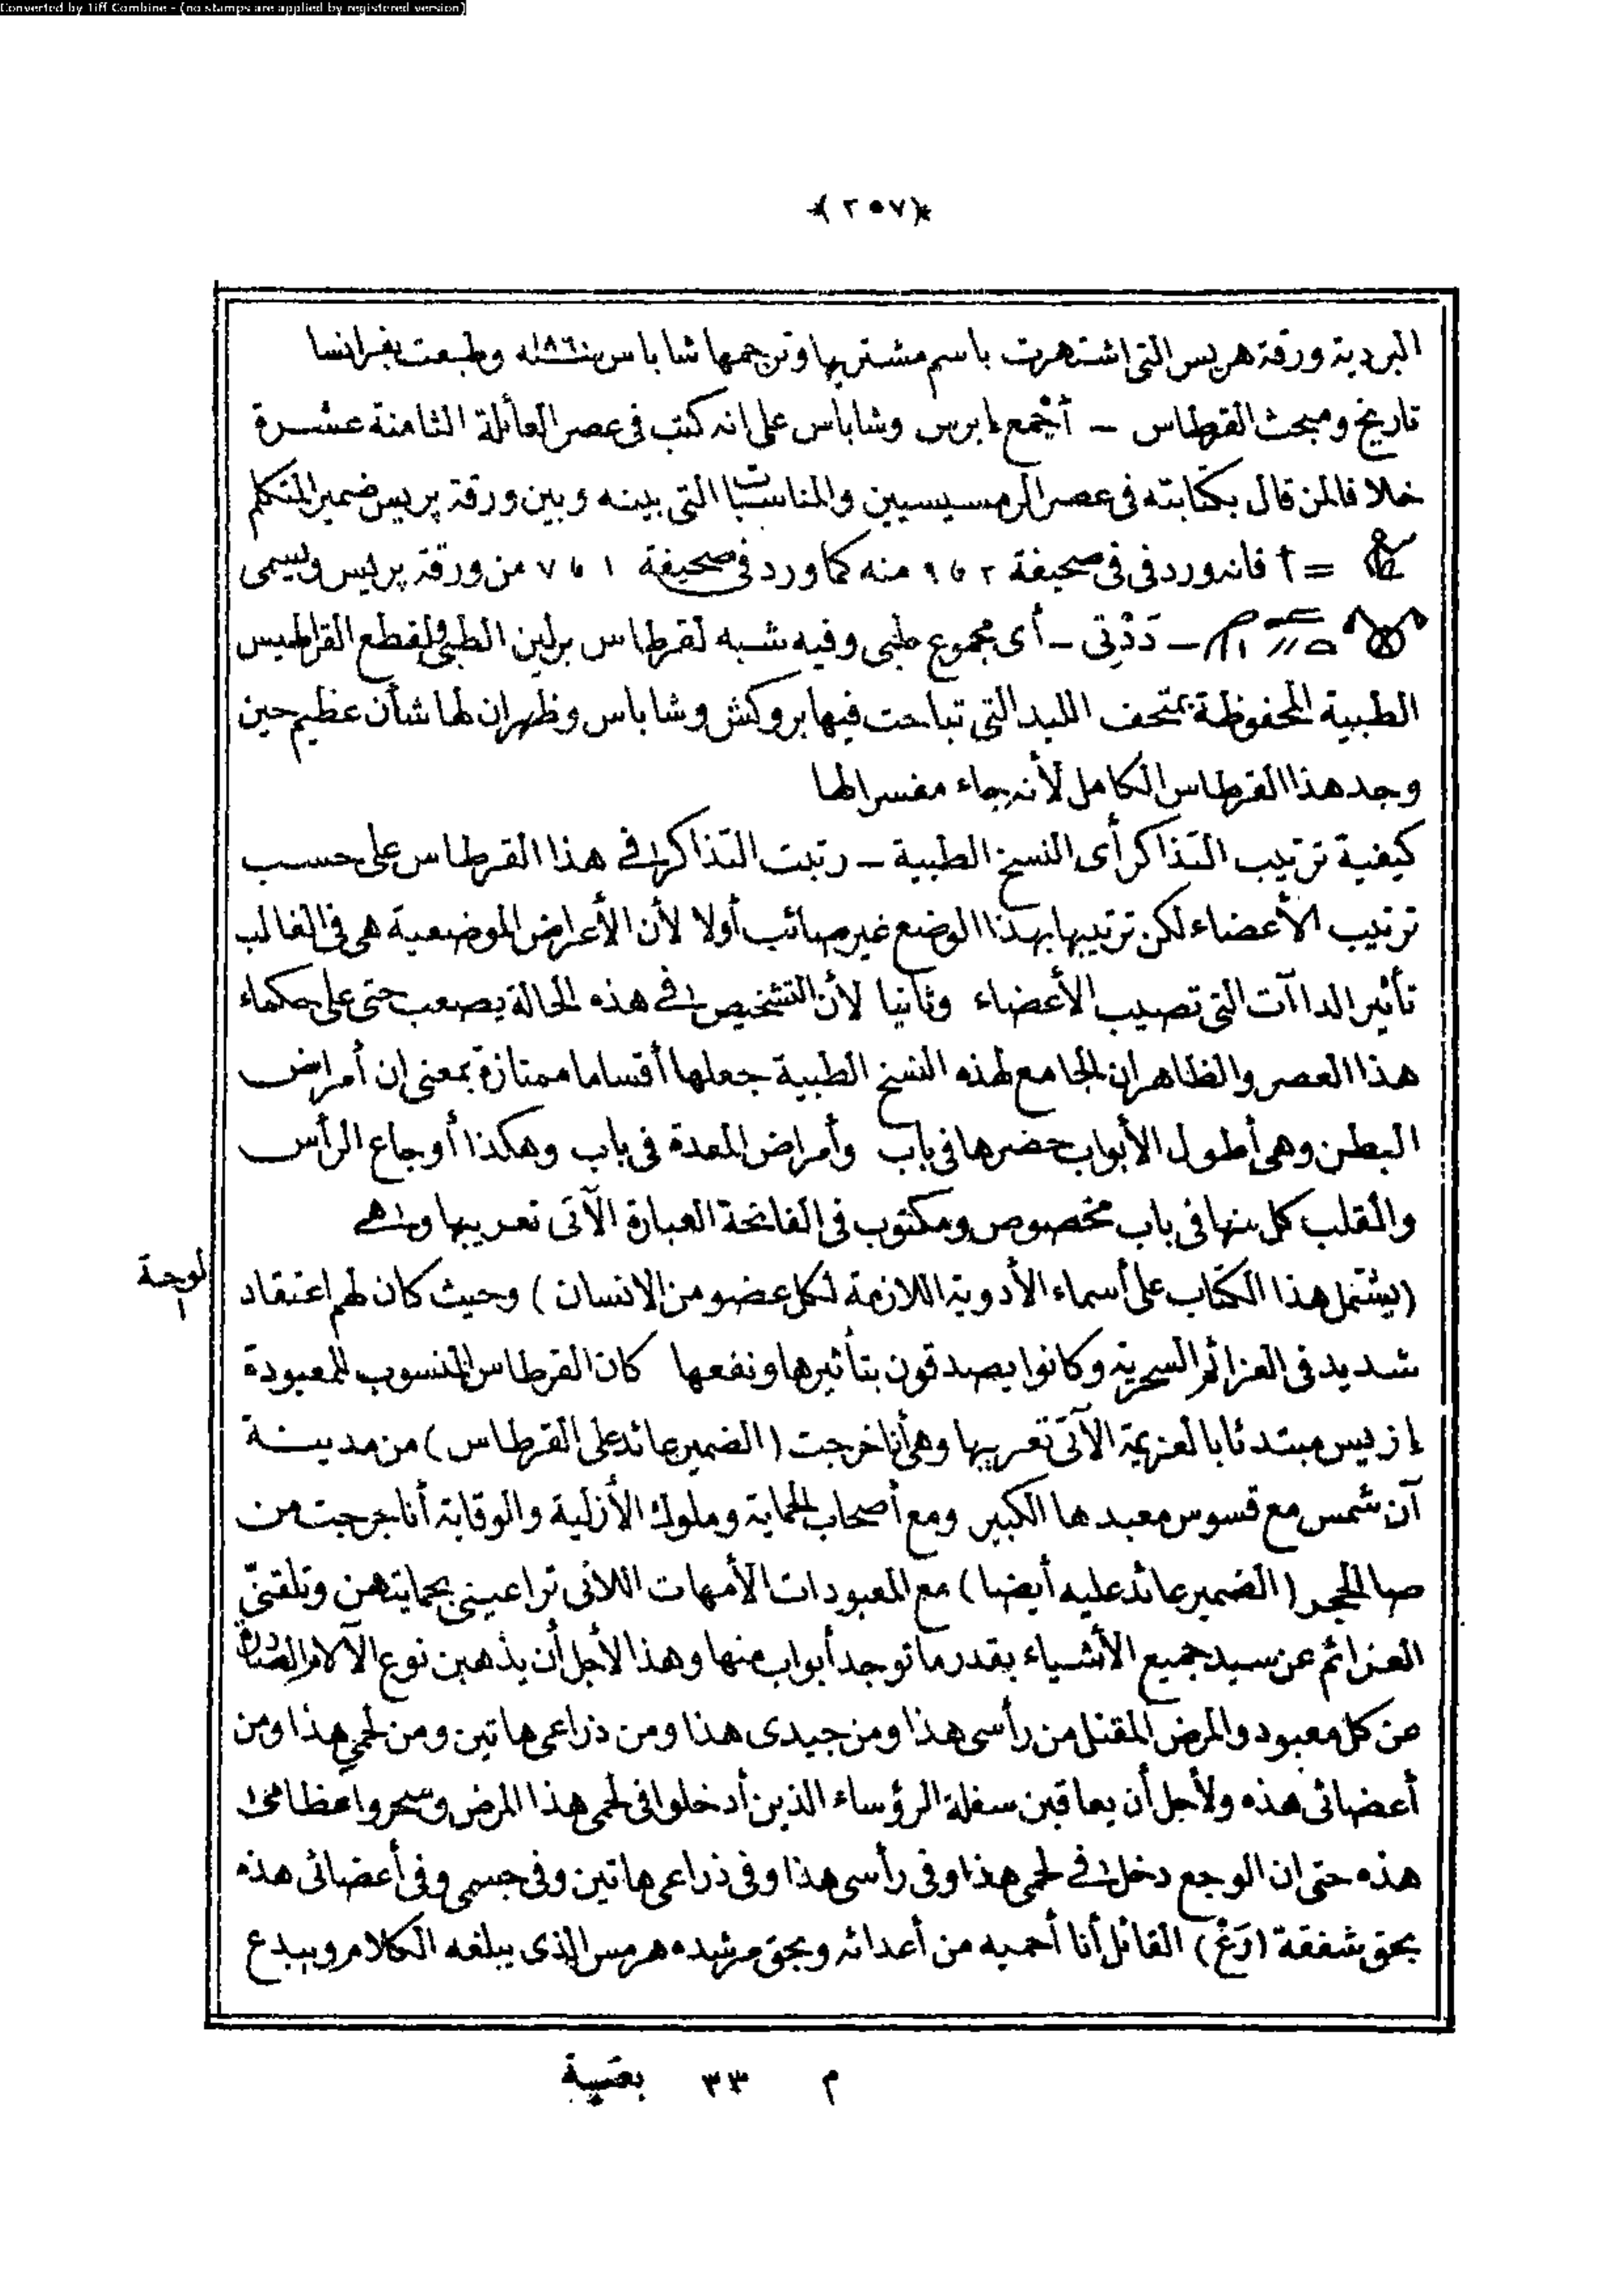 Converted by Tiff Combine - (no stamps are applied by registered version)
﴿٢٥٧﴾
البردية ورقة هريس التى اشتهرت باسم مشتريها وترجمها شاباس سنة ١٨٦٠ وطبعت بفرانسا
تاريخ ومبحث القرطاس – أجمع إبرس وشاباس على انه كتب فى عصر العائلة الثامنة عشرة
خلافا لمن قال بكتابته فى عصر الرمسيسيين والمناسبات التى بينه وبين ورقة پريس ضمير المتكلم
= أ فانه ورد فى فى صحيفة ٢ ، ٩ منه كما ورد فى صحيفة ١ ، ٧ من ورقة پريس ويسمى
– دَدْتِى – أى مجموع طبى وفيه شبه لقرطاس برلين الطبى ولقطع القراطيس
الطبية المحفوظة بمتحف الليد التى تباحت فيها بروكش وشاباس وظهر ان لها شأن عظيم حين
وجد هذا القرطاس الكامل لأنه جاء مفسرا لها
كيفية ترتيب التذاكر أى النسخ الطبية – رتبت التذاكر فى هذا القرطاس على حسب
ترتيب الأعضاء لكن ترتيبها بهذا الوضع غير صائب أولا لأن الأعراض الموضعية هى فى الغالب
تأثير الداآت التى تصيب الأعضاء وثانيا لأن التشخيص فى هذه الحالة يصعب حتى على حكماء
هذا العصر والظاهر ان الجامع لهذه النسخ الطبية جعلها أقساما ممتازة بمعنى ان أمراض
البطن وهى أطول الأبواب حضرها فى باب وأمراض المعدة فى باب وهكذا أوجاع الرأس
والقلب كل منها فى باب مخصوص ومكتوب فى الفاتحة العبارة الآتى تعريبها وهى
لوحة
١
(يشتمل هذا الكتاب على أسماء الأدوية اللازمة لكل عضو من الانسان) وحيث كان لهم اعتقاد
شديد فى العزائم السحرية وكانوا يصدقون بتأثيرها ونفعها كان القرطاس المنسوب للمعبودة
إزيس مبتدئا بالعزيمة الآتى تعريبها وهى أنا خرجت (الضمير عائد على القرطاس) من مدينة
آن شمس مع قسوس معبدها الكبير ومع أصحاب الحماية وملوك الأزلية والوقاية أنا خرجت من
صا الحجر (الضمير عائد عليه أيضا) مع المعبودات الأمهات اللاتى تراعينى بحمايتهن وتلقنى
العزائم عن سيد جميع الأشياء بقدر ما توجد أبواب منها وهذا لأجل أن يذهبن نوع الآلام الصادرة
من كل معبود والمرض المقتل من رأسى هذا ومن جيدى هذا ومن ذراعى هاتين ومن لحمى هذا ومن
أعضائى هذه ولأجل أن يعاقبن سفلة الرؤساء الذين أدخلوا فى لحمى هذا المرض وسحروا عظامى
هذه حتى ان الوجع دخل فى لحمى هذا وفى رأسى هذا وفى ذراعى هاتين وفى جسمى وفى أعضائى هذه
بحق شفقة (رَعْ) القائل أنا أحميه من أعدائه وبحق مرشده هرمس الذى يبلغه الكلام ويبدع
م ٣٣ بقية